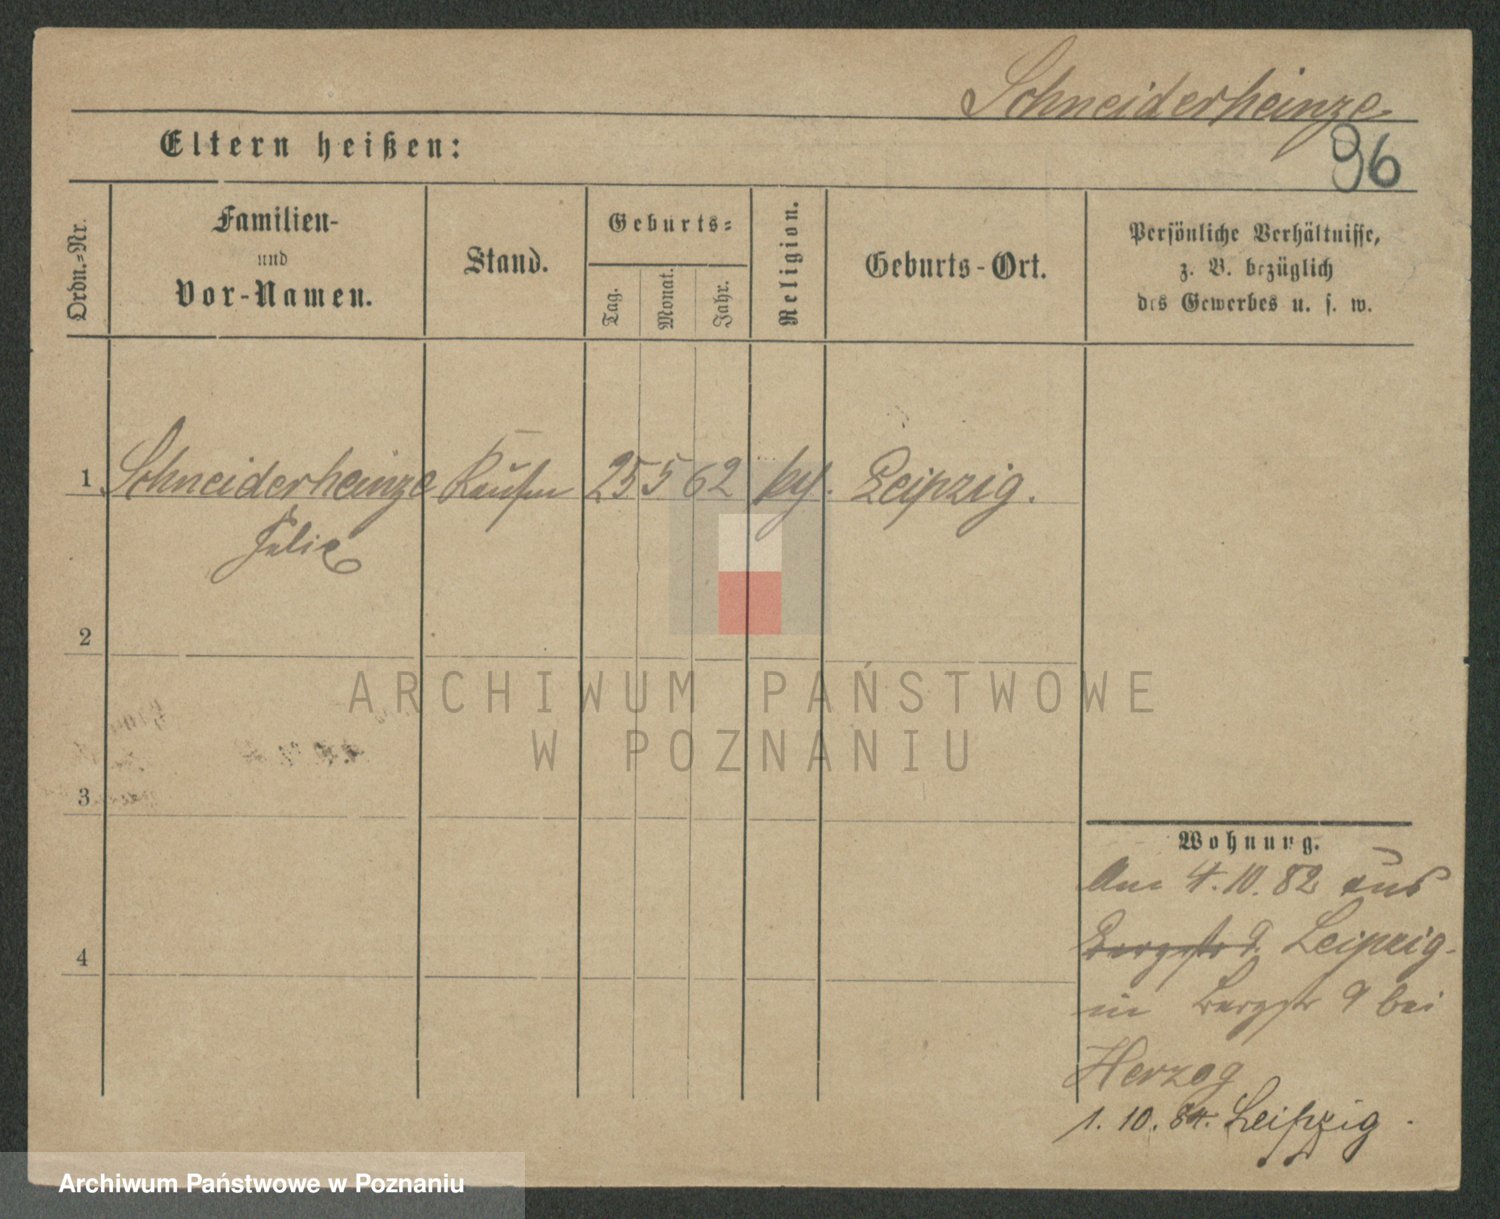 Schneiderheinze
Eltern heißen:
96
Ordn.-Nr.
Familien-
und
Vor-Namen.
Stand.
Geburts-
Tag.
Monat.
Jahr.
Religion.
Geburts-Ort.
Persönliche Verhältnisse,
z. B. bezüglich
des Gewerbes u. s. w.
1 Schneiderheinze Kaufm 25 5 62 Leipzig.
Felix
2
3
4
ARCHIWUM PAŃSTWOWE
W POZNANIU
Wohnung.
Am 4.10.82 aus
Bergstr 9. Leipzig-
in Bergstr 9 bei
Herzog
1.10.84. Leipzig.
Archiwum Państwowe w Poznaniu